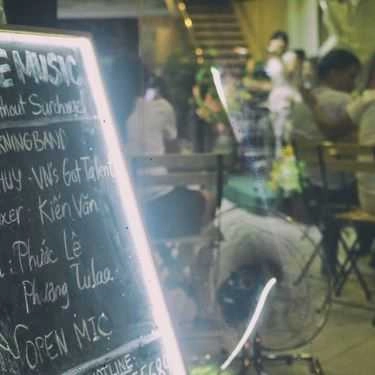 E MUSIC
thout Surcharge
RNING BAND
HUY - VN's Got Talent
oxer: Kiến Văn
: Phước Lê
Phương Tulaa
OPEN MIC
HOTLINE